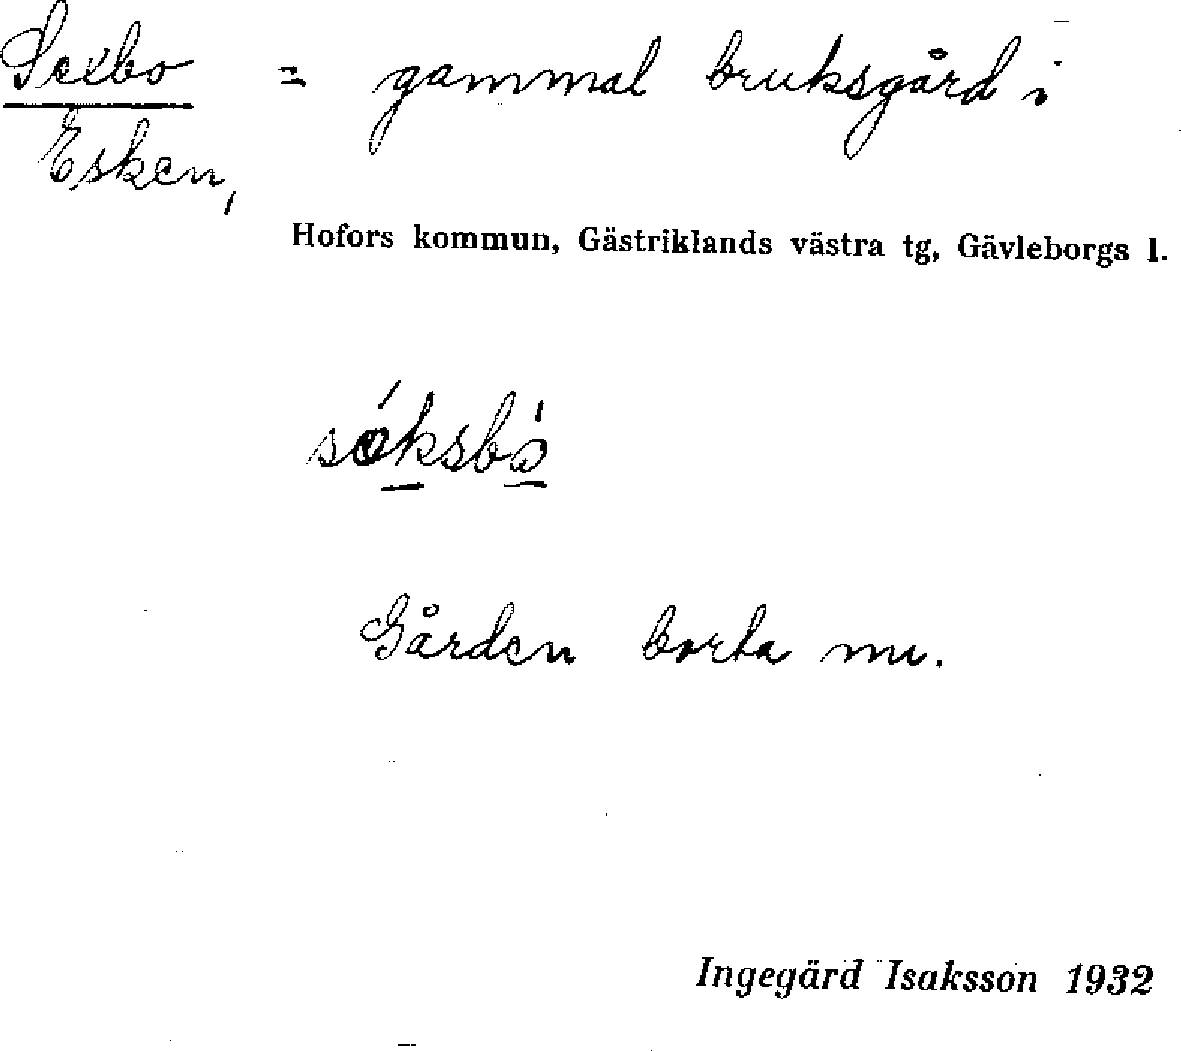 Sexbo = gammal bruksgård i
Esken,
Hofors kommun, Gästriklands västra tg, Gävleborgs l.
Gården borta nu.
Ingegärd Isaksson 1932